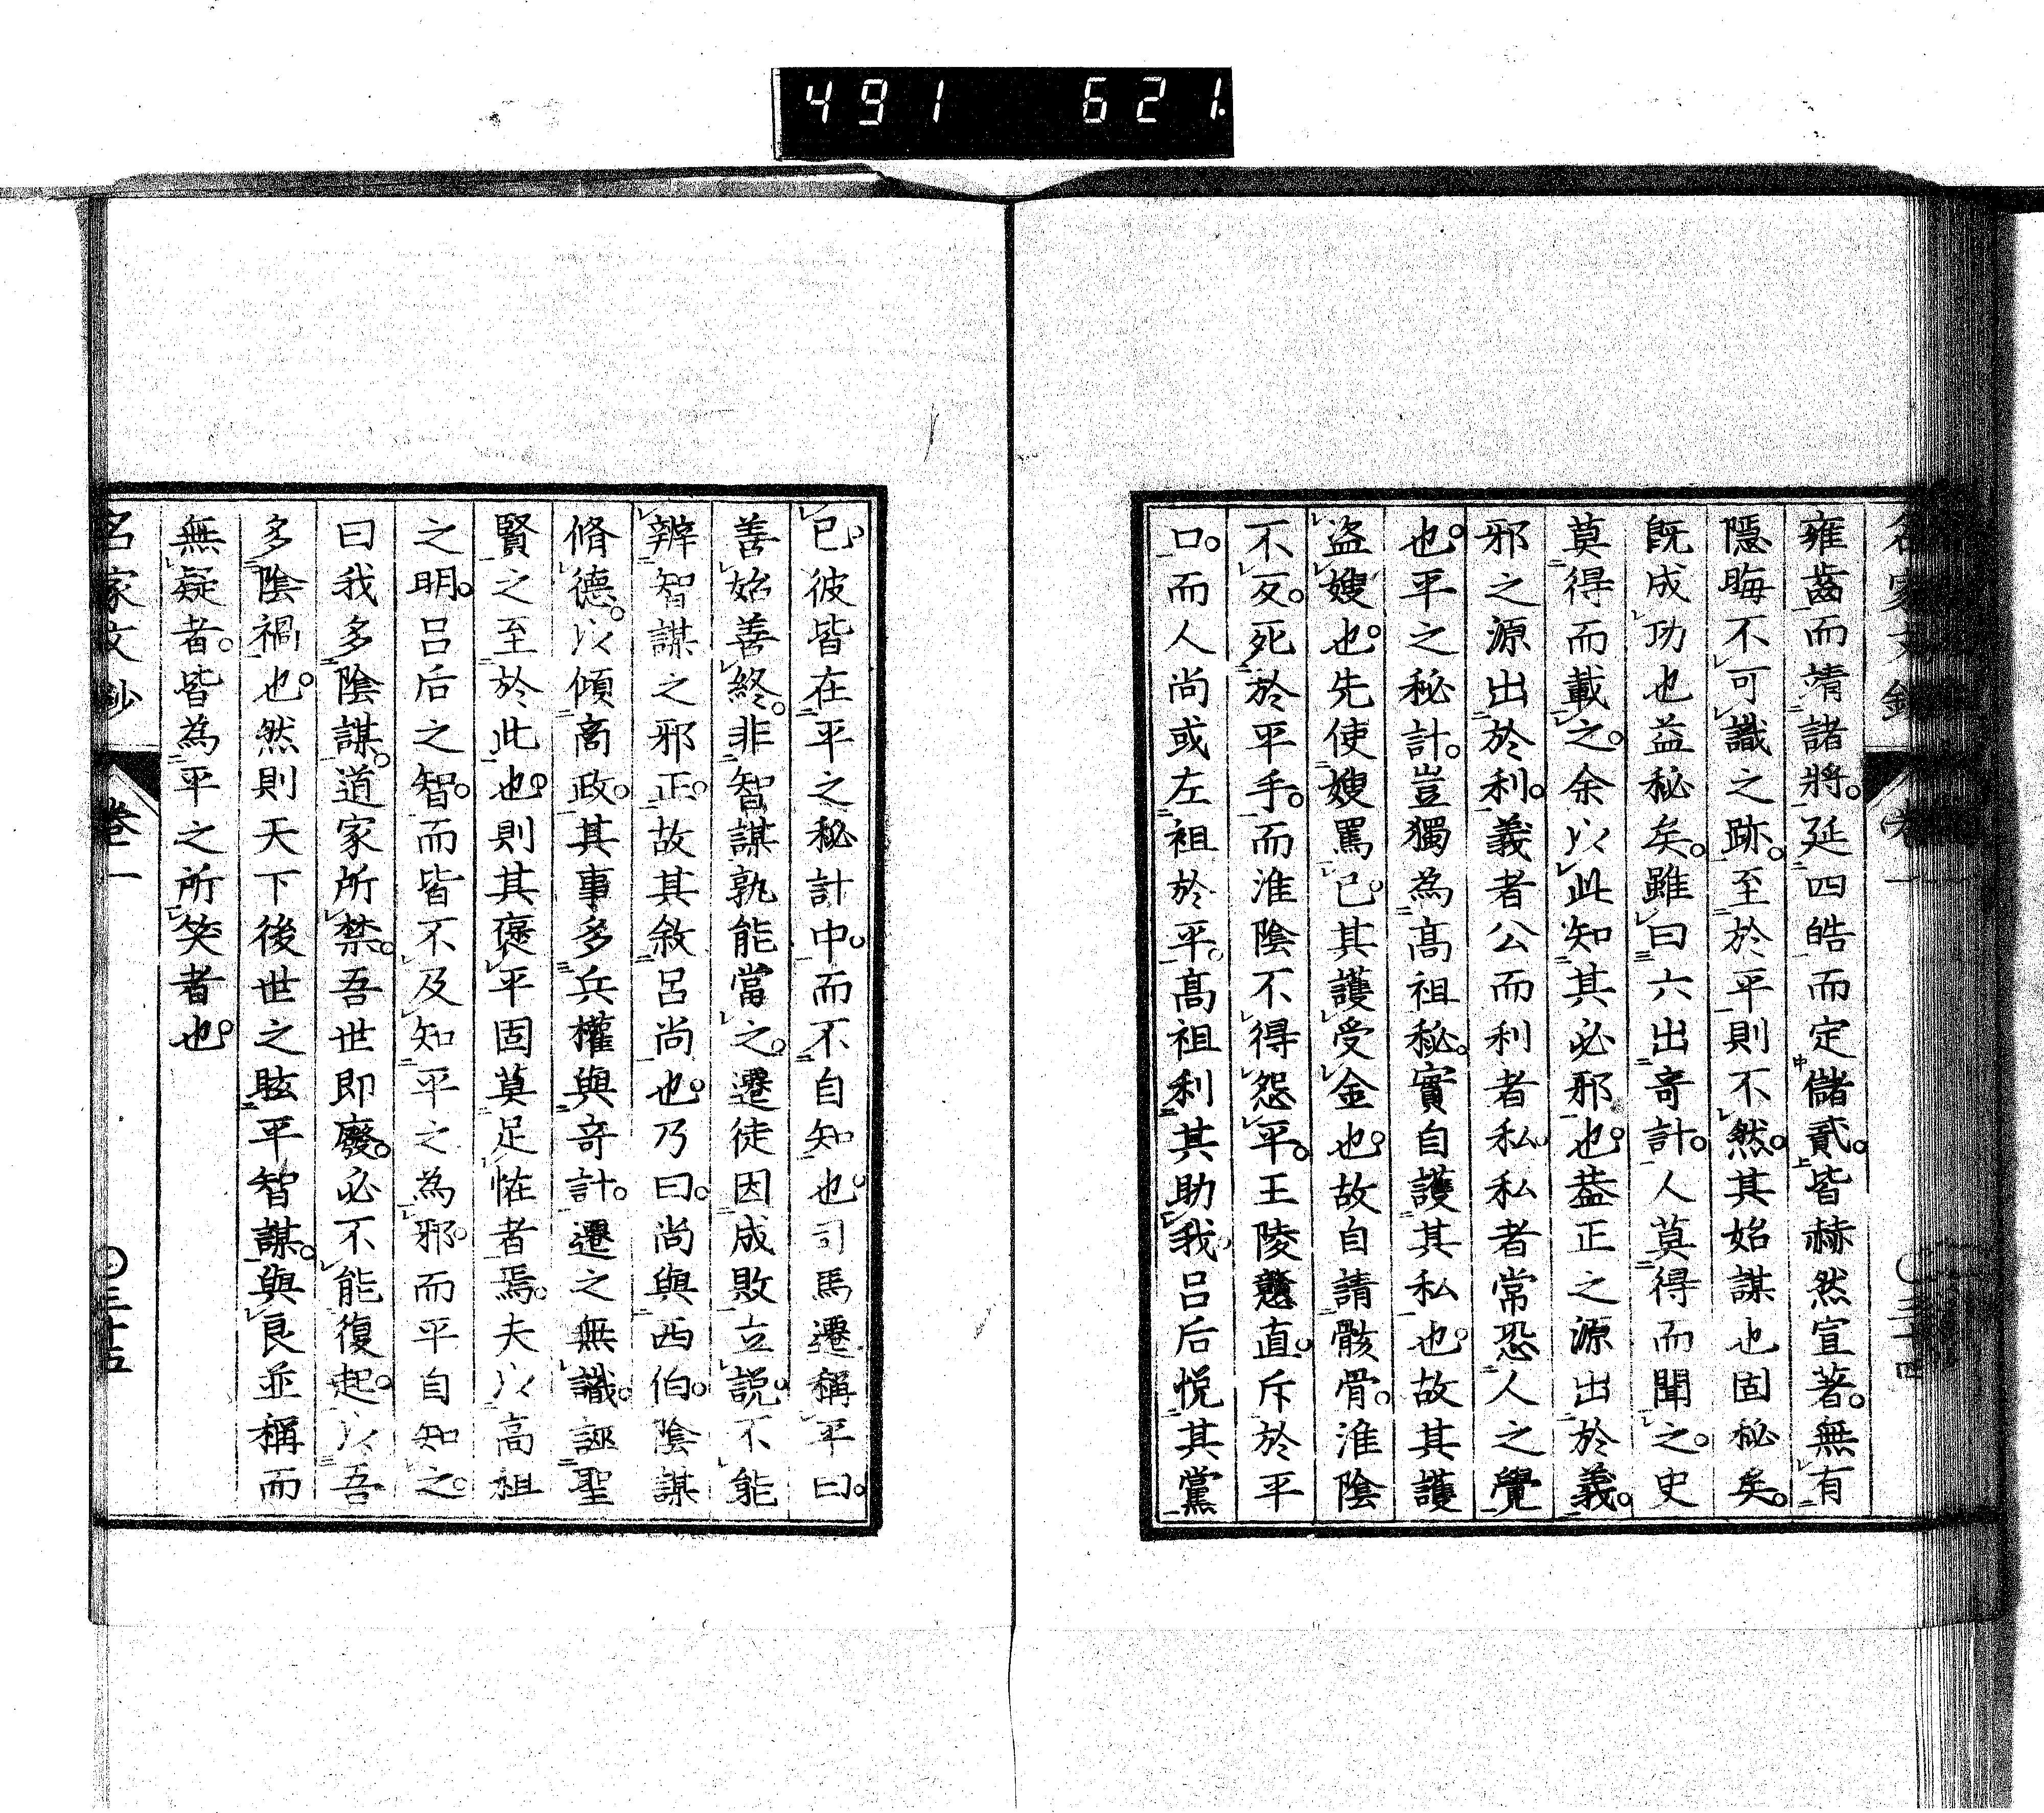 491 621.
雍齒而靖諸將。延四皓而定儲貳。皆赫然宣著。無有
隱晦不可識之跡。至於平則不然。其始謀也固秘矣。
既成功也益秘矣。雖曰六出奇計。人莫得而聞之。史
莫得而載之。余以此知其必邪也。蓋正之源出於義。
邪之源出於利。義者公而利者私。私者常恐人之覺
也。平之秘計。豈獨為高祖秘。實自護其私也。故其護
盜嫂也。先使嫂罵已。其護受金也。故自請骸骨。淮陰
不反。死於平手。而淮陰不得怨平。王陵戇直。斥於平
口。而人尚或左袒於平。高祖利其助我。呂后悅其黨
已。彼皆在平之秘計中。而不自知也。司馬遷稱平曰。
善始善終。非智謀孰能當之。遷徒因成敗立說。不能
辨智謀之邪正。故其敘呂尚也。乃曰。尚與西伯。陰謀
脩德。以傾商政。其事多兵權與奇計。遷之無識。誣聖
賢之至於此也。則其褒平固莫足怪者焉。夫以高祖
之明。呂后之智。而皆不及知平之為邪。而平自知之。
曰我多陰謀。道家所禁。吾世即廢。必不能復起。以吾
多陰禍也。然則天下後世之眩平智謀。與良並稱而
無疑者。皆為平之所笑者也。
名家文鈔 卷一 三十五